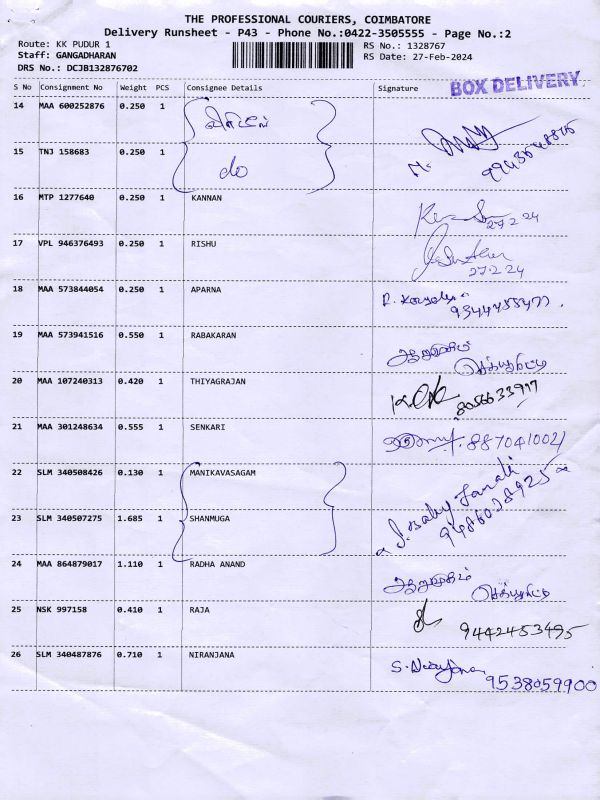 THE PROFESSIONAL COURIERS, COIMBATORE
Delivery Runsheet - P43 - Phone No.:0422-3505555 - Page No.:2
Route: KK PUDUR 1 RS No.: 1328767
Staff: GANGADHARAN RS Date: 27-Feb-2024
DRS No.: DCJB132876702
BOX DELIVERY
S No Consignment No Weight PCS Consignee Details Signature
14 MAA 600252876 0.250 1
15 TNJ 158683 0.250 1 do
16 MTP 1277640 0.250 1 KANNAN
27 2 24
17 VPL 946376493 0.250 1 RISHU
27 2 24
18 MAA 573844054 0.250 1 APARNA
19 MAA 573941516 0.550 1 RABAKARAN
20 MAA 107240313 0.420 1 THIYAGRAJAN
8056633917
21 MAA 301248634 0.555 1 SENKARI 8870410021
22 SLM 340508426 0.130 1 MANIKAVASAGAM
J. Baby Janaki
23 SLM 340507275 1.685 1 SHANMUGA
24 MAA 864879017 1.110 1 RADHA ANAND
25 NSK 997158 0.410 1 RAJA
9442453495
26 SLM 340487876 0.710 1 NIRANJANA
9538059900